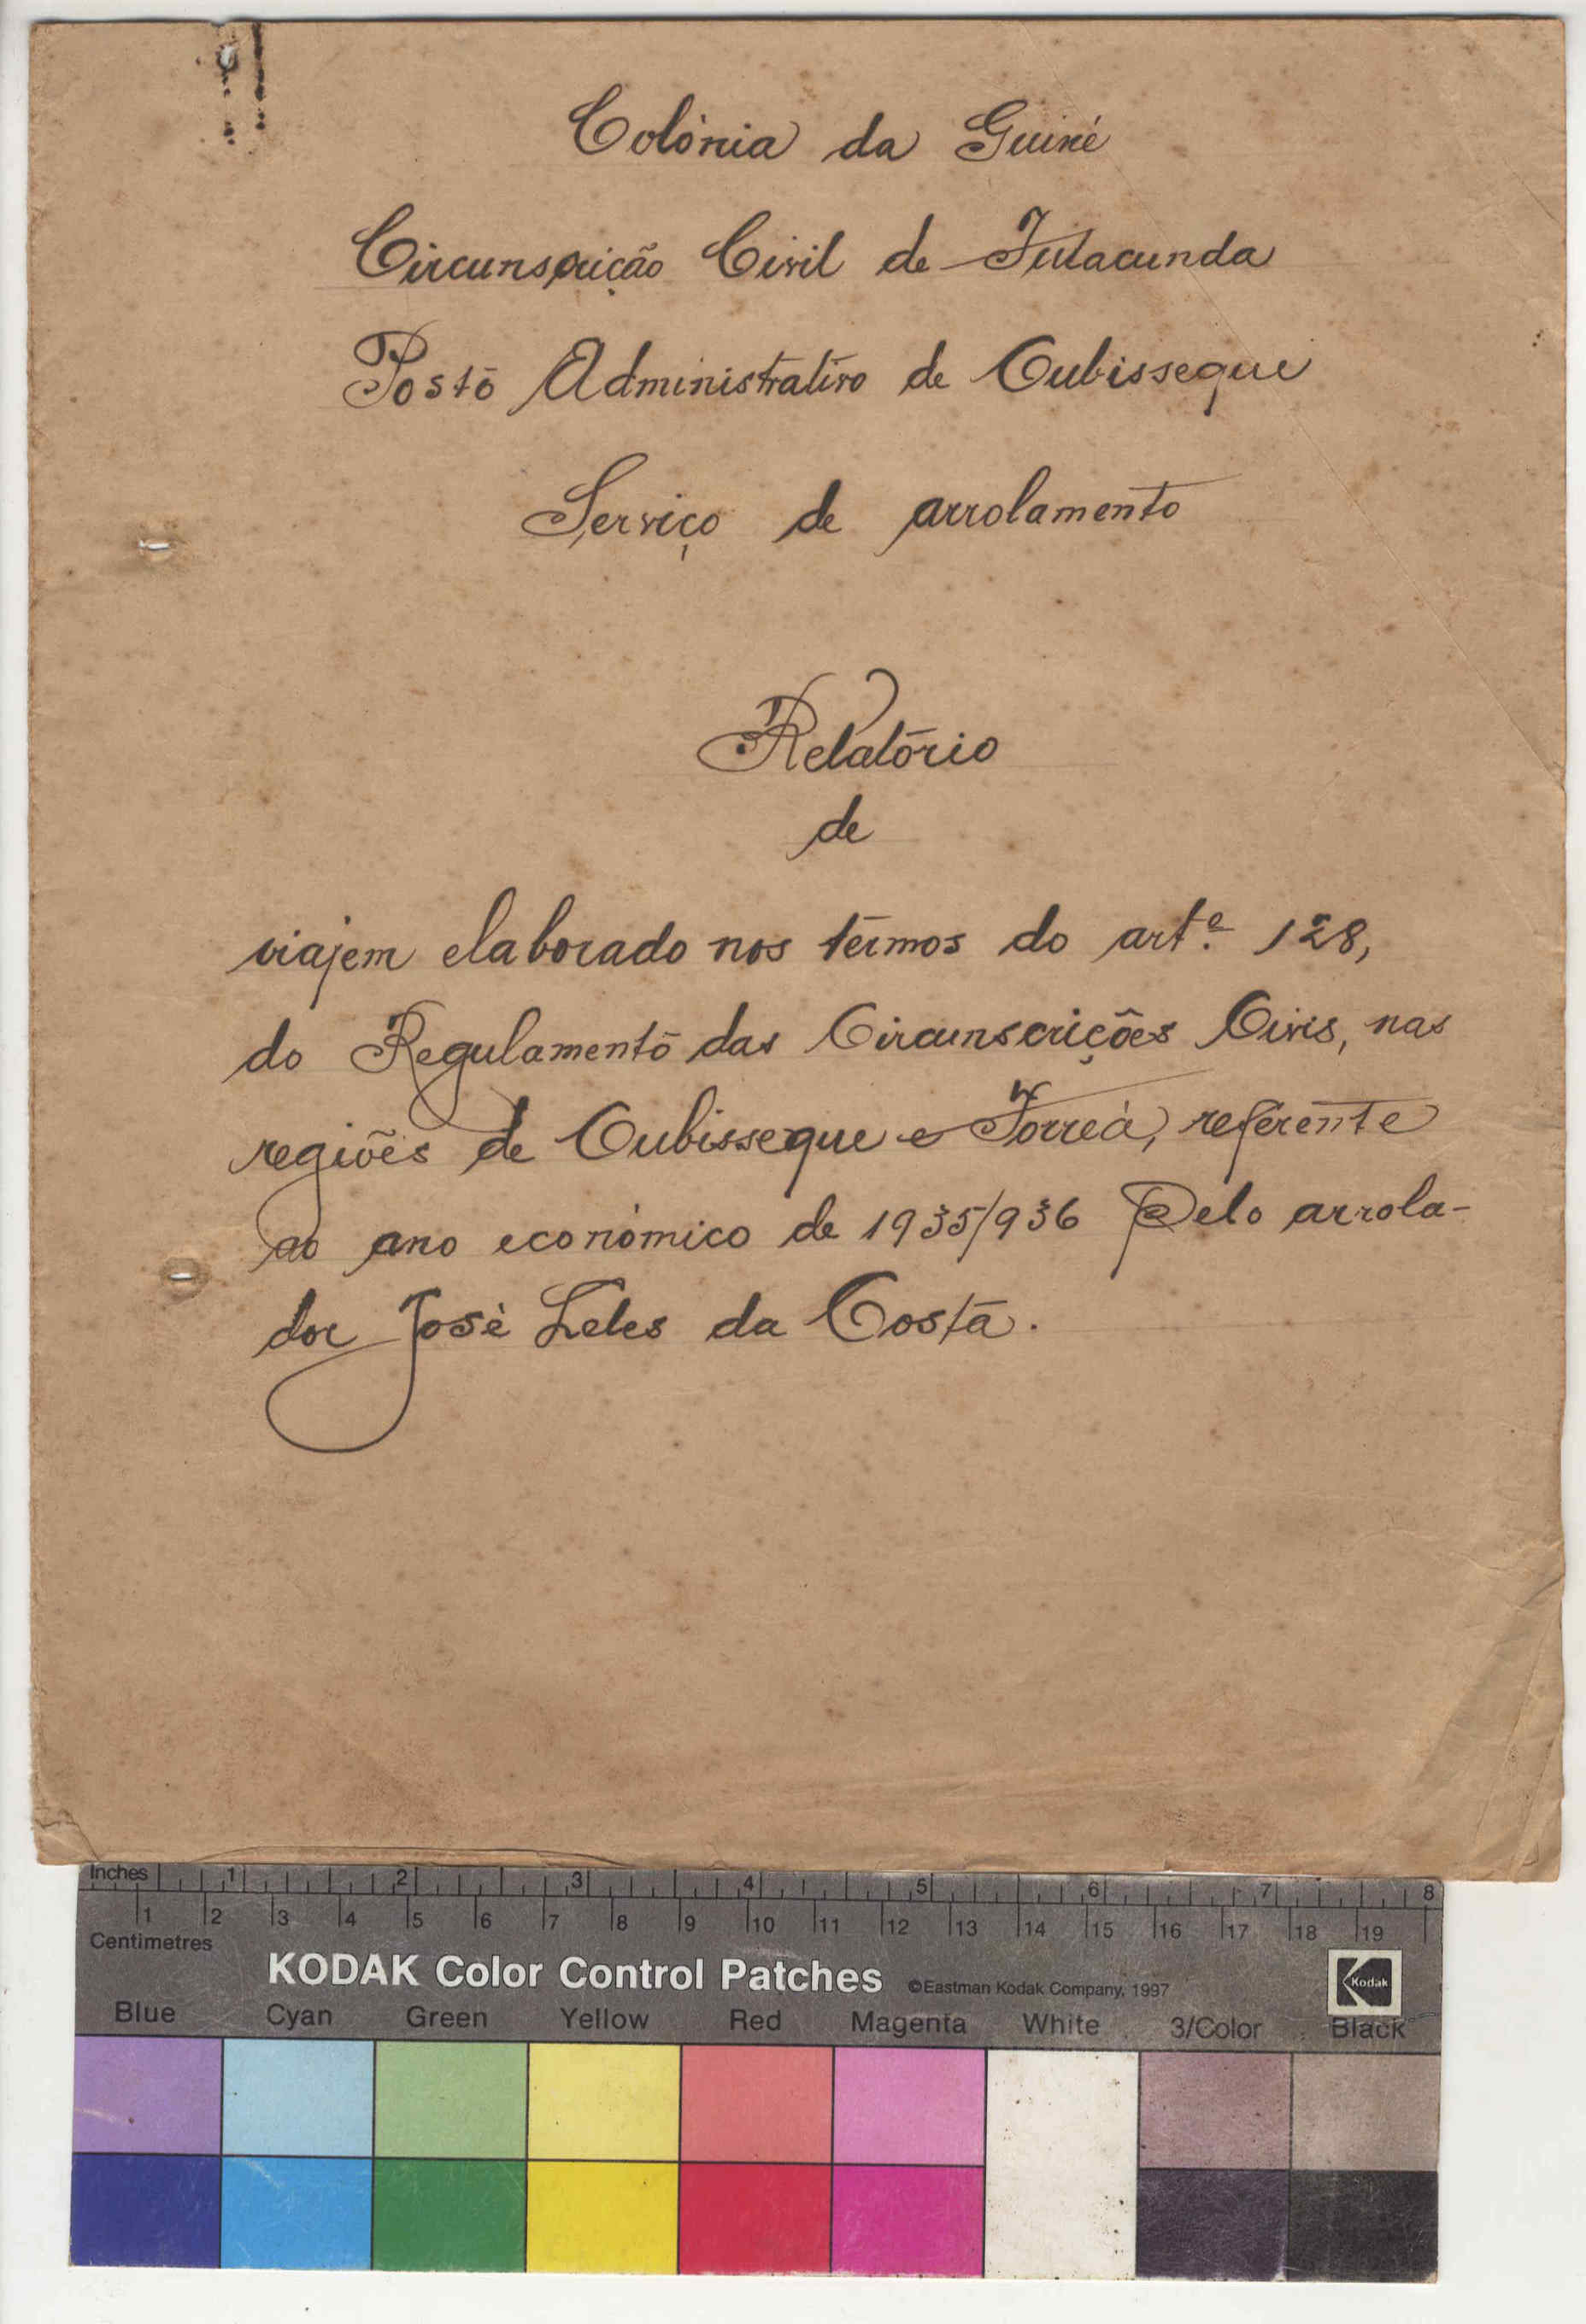 Colónia da Guiné
Circunscrição Civil de Fulacunda
Posto Administrativo de Cubisseque
Serviço de arrolamento
Relatório
de
viajem elaborado nos têrmos do artº. 128,
do Regulamento das Circunscrições Civis, nas
regiões de Cubisseque e Forreá, referente
ao ano económico de 1935/936 Pelo arrola-
dor José Leles da Costa.
Inches 1 2 3 4 5 6 7 8
1 2 3 4 5 6 7 8 9 10 11 12 13 14 15 16 17 18 19
Centimetres
KODAK Color Control Patches ©Eastman Kodak Company, 1997 Kodak
Blue Cyan Green Yellow Red Magenta White 3/Color Black